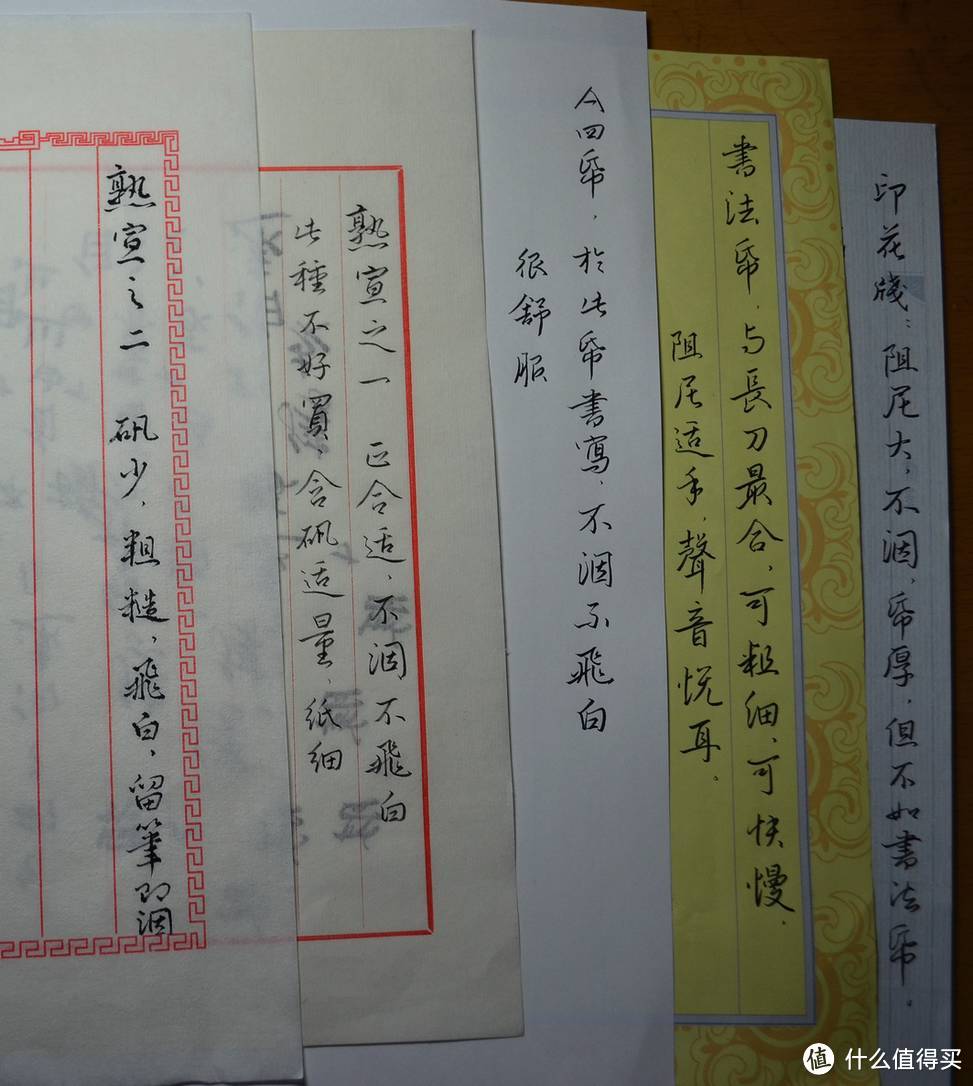 印花牋：阻尼大，不洇，帋厚，但不如書法帋。
書法帋，与長刀最合，可粗细，可快慢，
阻尼适手，聲音悦耳。
A四帋，於此帋書寫，不洇不飛白
很舒服
熟宣之一 正合适，不洇不飛白
此種不好買，含矾适量，纸细
熟宣之二 矾少，粗糙，飛白，留筆即洇
值 什么值得买